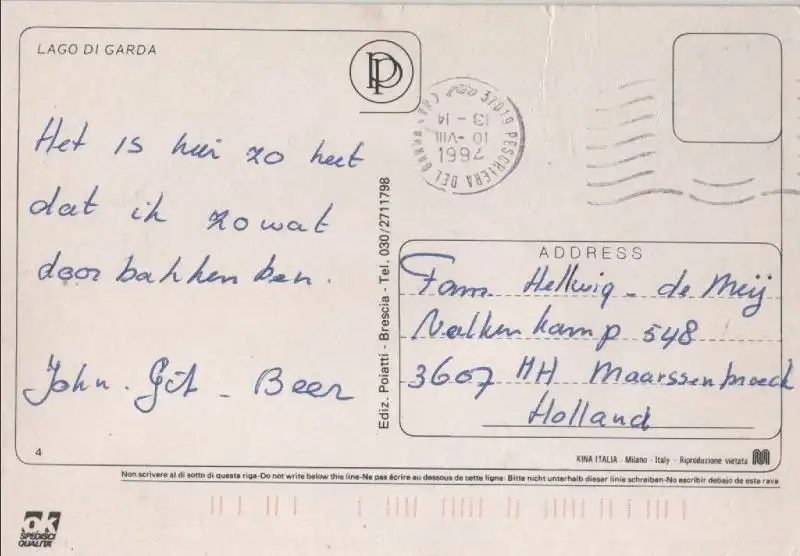 LAGO DI GARDA
Het is hier zo heet
dat ik zowat
doorbakken ben.
John. Git - Beer
4
Ediz. Poiatti - Brescia - Tel. 030/2711798
37019 PESCHIERA DEL GARDA (VR)
13 - 14
10 -VIII
1994
ADDRESS
Fam. Hellwig - de Meij
Valkenkamp 548
3607 MH Maarssenbroek
Holland
KINA ITALIA - Milano - Italy - Riproduzione vietata
Non scrivere al di sotto di questa riga-Do not write below this line-Ne pas écrire au dessous de cette ligne- Bitte nicht unterhalb dieser linie schreiben-No escribir debajo de esta raya
ok
SPEDISCI
QUALITÀ